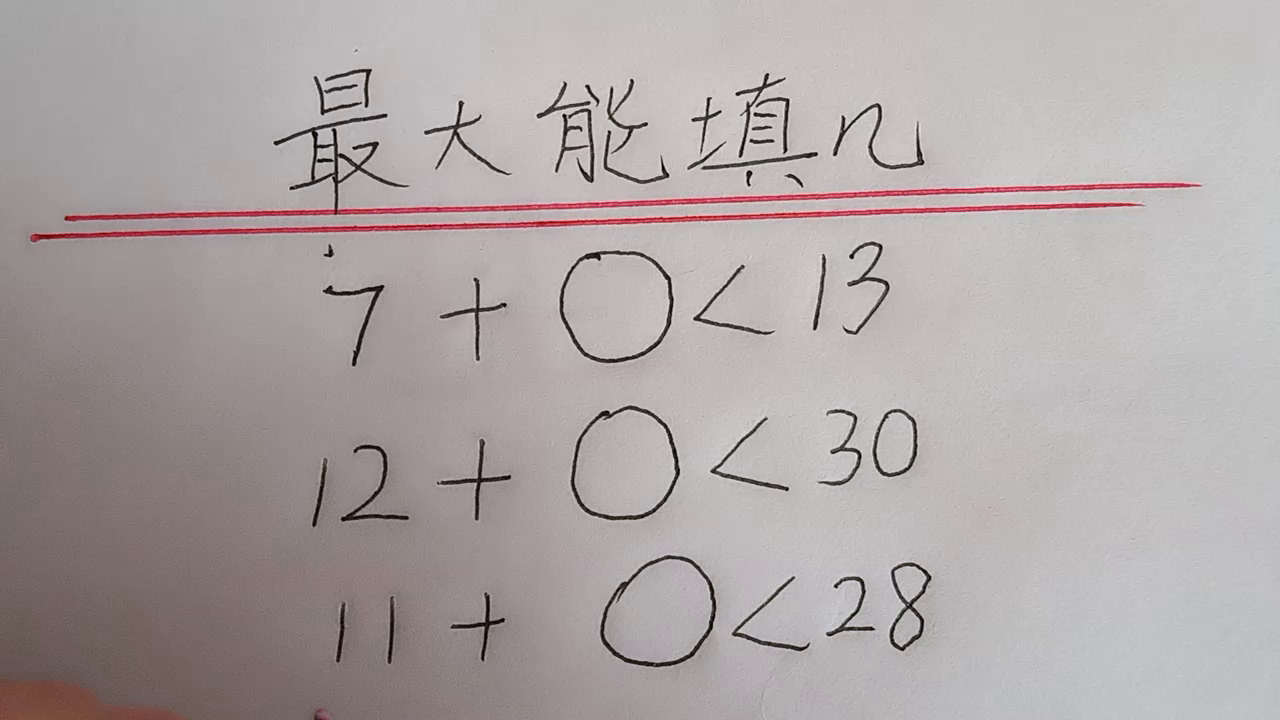 最大能填几
7 + ○ < 13
12 + ○ < 30
11 + ○ < 28